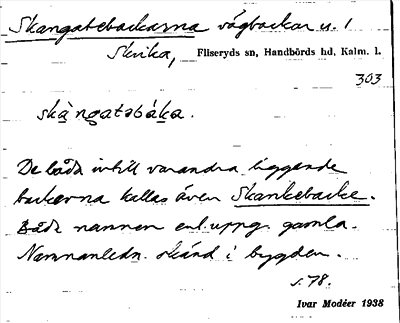 Skangatebackarna vägbackar u. 1
Skrika, Fliseryds sn, Handbörds hd, Kalm. l.
303
skàngatəbáka.
De båda intill varandra liggende
backarna kallas även Skankebacke.
Båda namnen enl. uppg. gamla.
Namnanledn. okänd i bygden.
s. 78.
Ivar Modéer 1938